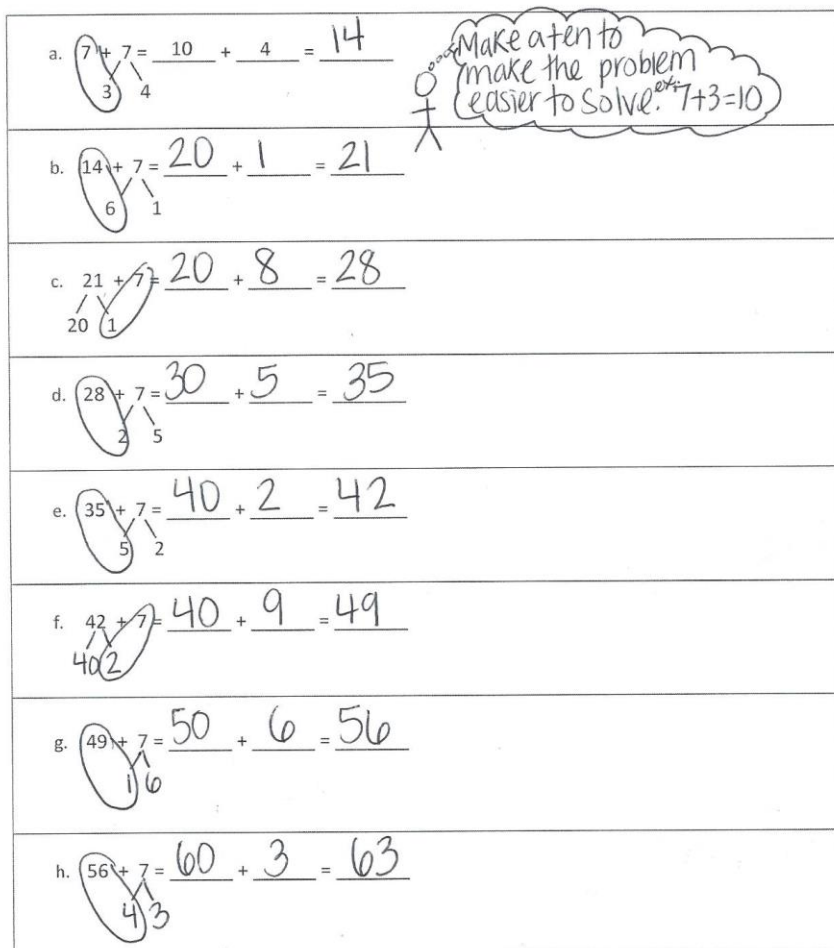 a. 7 + 7 = 10 + 4 = 14
3 4
Make a ten to
make the problem
easier to solve. ex. 7+3=10
b. 14 + 7 = 20 + 1 = 21
6 1
c. 21 + 7 = 20 + 8 = 28
20 1
d. 28 + 7 = 30 + 5 = 35
2 5
e. 35 + 7 = 40 + 2 = 42
5 2
f. 42 + 7 = 40 + 9 = 49
40 2
g. 49 + 7 = 50 + 6 = 56
1 6
h. 56 + 7 = 60 + 3 = 63
4 3